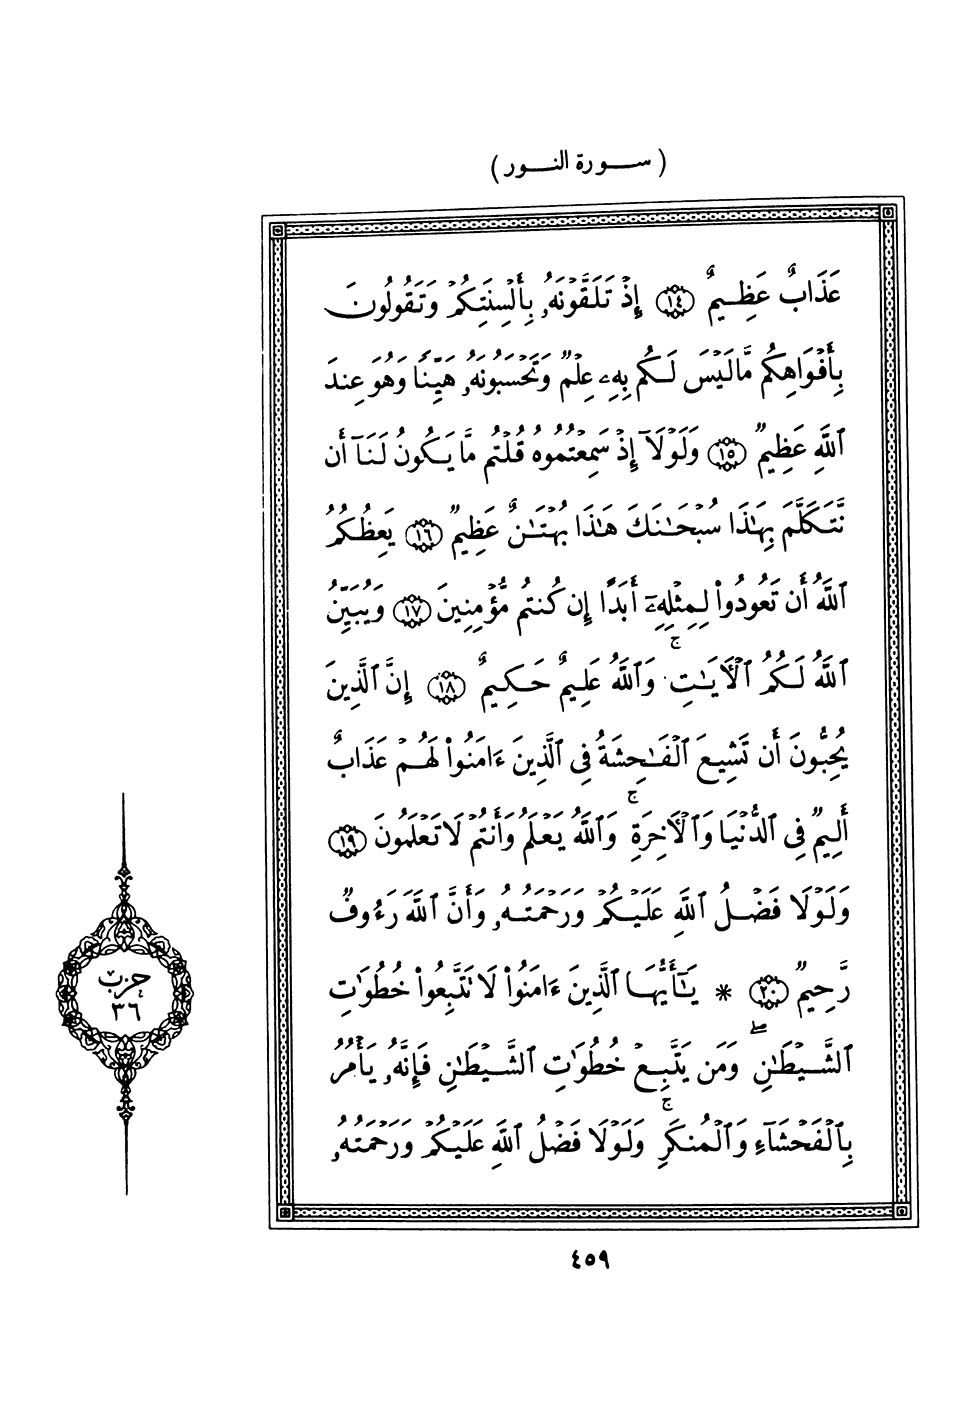 ( ســـورة النـــور )
عَذَابٌ عَظِيمٌ ١٤ إِذْ تَلَقَّوْنَهُۥ بِأَلْسِنَتِكُمْ وَتَقُولُونَ
بِأَفْوَاهِكُم مَّا لَيْسَ لَكُم بِهِۦ عِلْمٌ وَتَحْسَبُونَهُۥ هَيِّنًا وَهُوَ عِندَ
ٱللَّهِ عَظِيمٌ ١٥ وَلَوْلَآ إِذْ سَمِعْتُمُوهُ قُلْتُم مَّا يَكُونُ لَنَآ أَن
نَّتَكَلَّمَ بِهَـٰذَا سُبْحَـٰنَكَ هَـٰذَا بُهْتَـٰنٌ عَظِيمٌ ١٦ يَعِظُكُمُ
ٱللَّهُ أَن تَعُودُوا۟ لِمِثْلِهِۦٓ أَبَدًا إِن كُنتُم مُّؤْمِنِينَ ١٧ وَيُبَيِّنُ
ٱللَّهُ لَكُمُ ٱلْـَٔايَـٰتِ ۚ وَٱللَّهُ عَلِيمٌ حَكِيمٌ ١٨ إِنَّ ٱلَّذِينَ
يُحِبُّونَ أَن تَشِيعَ ٱلْفَـٰحِشَةُ فِى ٱلَّذِينَ ءَامَنُوا۟ لَهُمْ عَذَابٌ
أَلِيمٌ فِى ٱلدُّنْيَا وَٱلْـَٔاخِرَةِ ۚ وَٱللَّهُ يَعْلَمُ وَأَنتُمْ لَا تَعْلَمُونَ ١٩
وَلَوْلَا فَضْلُ ٱللَّهِ عَلَيْكُمْ وَرَحْمَتُهُۥ وَأَنَّ ٱللَّهَ رَءُوفٌ
رَّحِيمٌ ٢٠ * يَـٰٓأَيُّهَا ٱلَّذِينَ ءَامَنُوا۟ لَا تَتَّبِعُوا۟ خُطُوَٰتِ
ٱلشَّيْطَـٰنِ ۖ وَمَن يَتَّبِعْ خُطُوَٰتِ ٱلشَّيْطَـٰنِ فَإِنَّهُۥ يَأْمُرُ
بِٱلْفَحْشَآءِ وَٱلْمُنكَرِ ۚ وَلَوْلَا فَضْلُ ٱللَّهِ عَلَيْكُمْ وَرَحْمَتُهُۥ
حزب
٣٦
٤٥٩